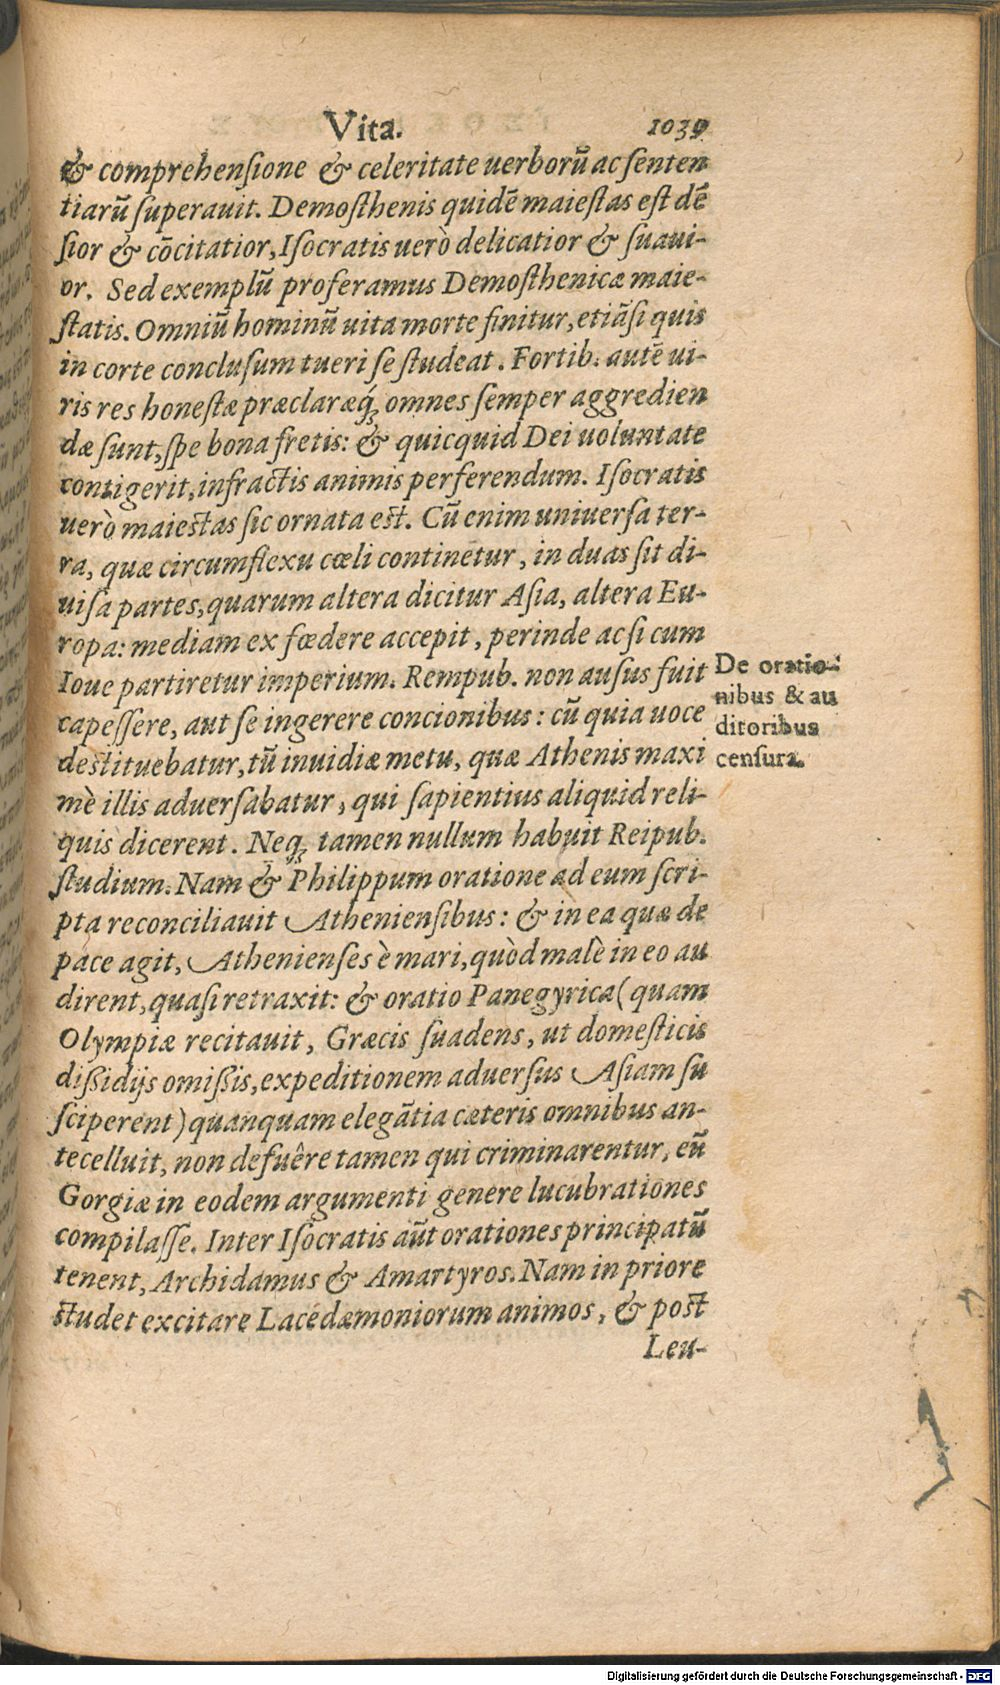 Vita. 1039
& comprehensione & celeritate uerborũ ac senten
tiarũ superauit. Demosthenis quidẽ maiestas est dẽ
sior & cõcitatior, Isocratis uerò delicatior & suaui-
or. Sed exemplũ proferamus Demosthenicæ maie-
statis. Omniũ hominũ uita morte finitur, etiãsi quis
in corte conclusum tueri se studeat. Fortib. autẽ ui-
ris res honestæ præclaræq́; omnes semper aggredien
dæ sunt, spe bona fretis: & quicquid Dei uoluntate
contigerit, infractis animis perferendum. Isocratis
uerò maiestas sic ornata est. Cũ enim uniuersa ter-
ra, quæ circumflexu cœli continetur, in duas sit di-
uisa partes, quarum altera dicitur Asia, altera Eu-
ropa: mediam ex fœdere accepit, perinde ac si cum
Ioue partiretur imperium. Rempub. non ausus fuit
capessere, aut se ingerere concionibus: cũ quia uoce
destituebatur, tũ inuidiæ metu, quæ Athenis maxi
mè illis aduersabatur, qui sapientius aliquid reli-
quis dicerent. Neq; tamen nullum habuit Reipub.
studium. Nam & Philippum oratione ad eum scri-
pta reconciliauit Atheniensibus: & in ea quæ de
pace agit, Athenienses è mari, quòd malè in eo au
dirent, quasi retraxit: & oratio Panegyrica (quam
Olympiæ recitauit, Græcis suadens, ut domesticis
dißidijs omißis, expeditionem aduersus Asiam su
sciperent) quanquam elegãtia cæteris omnibus an-
tecelluit, non defuêre tamen qui criminarentur, eũ
Gorgiæ in eodem argumenti genere lucubrationes
compilasse. Inter Isocratis aũt orationes principatũ
tenent, Archidamus & Amartyros. Nam in priore
studet excitare Lacedæmoniorum animos, & post
Leu-
De oratio-
nibus & au
ditoribus
censura.
Digitalisierung gefördert durch die Deutsche Forschungsgemeinschaft - DFG